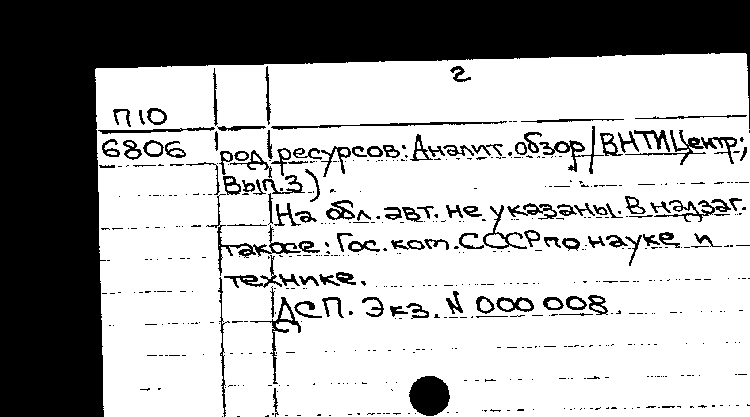 2
П10
6806
род. ресурсов: Аналит. обзор / ВНТИЦентр;
Вып. 3).
На обл. авт. не указаны. В надзаг.
также: Гос. ком. СССР по науке и
технике.
ДСП. Экз. N 000 008.